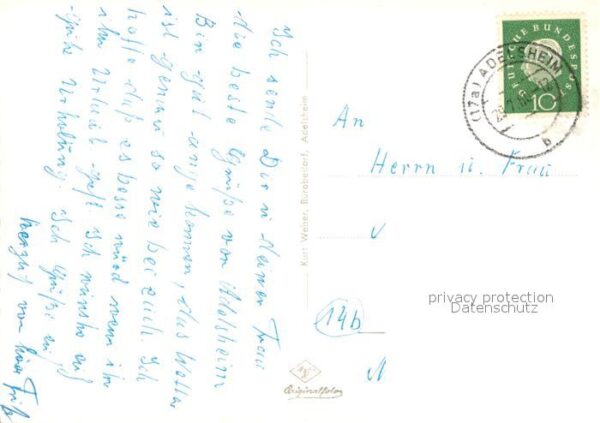 Ich sende Dir u. Deiner Frau
die beste Grüße von Adelsheim
Bin gut angekommen, das Wetter
ist genau so wie bei euch. Ich
hoffe daß es besser wird wenn ihr
in Urlaub geht. Ich wünsche euch
gute Erholung. Ich Grüße euch
herzlich von
Kurt Weber, Burobedarf, Adelsheim
DEUTSCHE BUNDESPOST
10
(17a) ADELSHEIM
b
An
Herrn u. Frau
privacy protection
Datenschutz
14b
Originalfoto